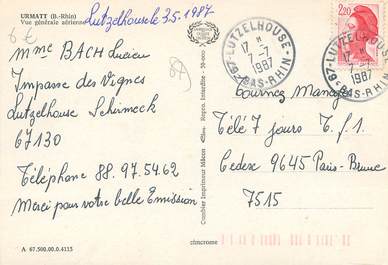 URMATT (B.-Rhin)
Vue générale aérienne
Lutzelhouse le 3.5.1987
6 €
Mme BACH Lucien
Impasse des Vignes
Lutzelhouse Schirmeck
67130
Téléphone 88.97.54.62
Merci pour votre belle Emission
A 67.500.00.0.4113
Combier Imprimeur Mâcon
Repro. Interdite - 30-000
cimcrome
67-LUTZELHOUSE
17 H
7-7
1987
BAS-RHIN
2,20
67-LUTZELHOUSE
17 H
7-7
1987
BAS-RHIN
Tournez Manège
Télé 7 jours T.f.1.
Cedex 9645 Paris-Brune
7515